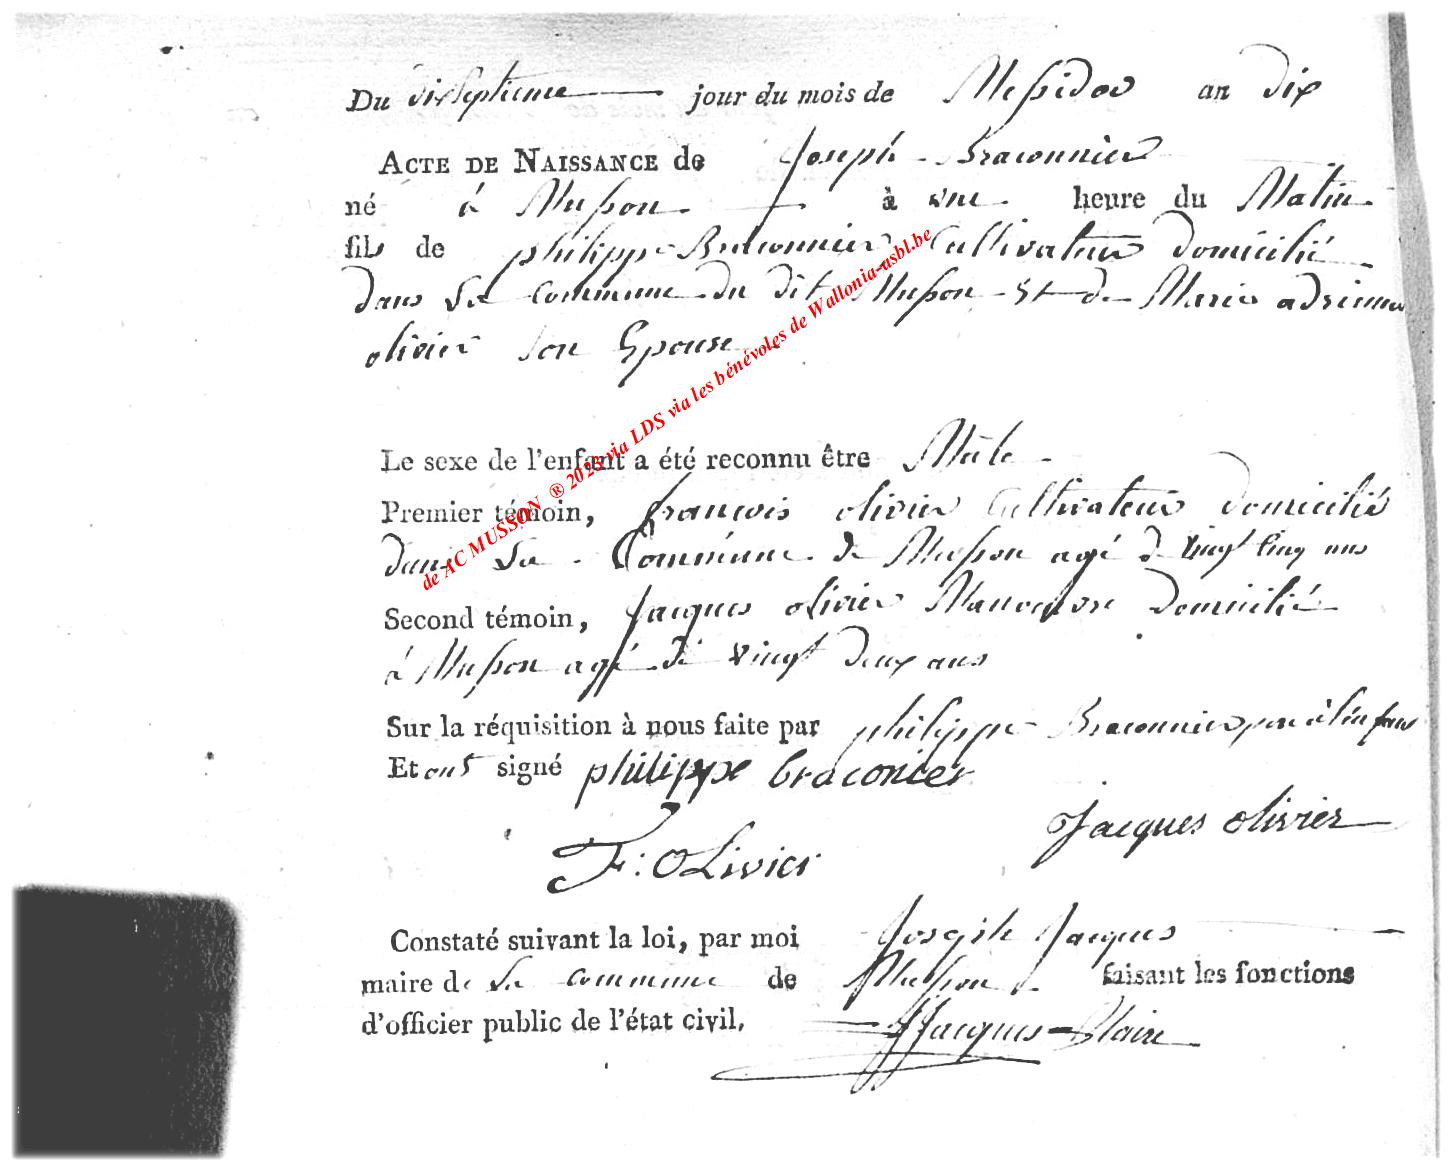 Du dixseptieme jour du mois de Messidor an dix
ACTE DE NAISSANCE de Joseph Braconnier
né à Musson à une heure du Matin
fils de philippe Braconnier Cultivateur domicilié
dans La Commune du dit Musson Et de Marie adrienne
olivier son Epouse
Le sexe de l'enfant a été reconnu être Mâle
Premier témoin, francois olivier Cultivateur domicilié
dans La Commune de Musson agé de vingt Cinq ans
Second témoin, Jacques olivier Manoeuvre domicilié
à Musson agé de vingt deux ans
Sur la réquisition à nous faite par philippe Braconnier pere à l'enfant
Et ont signé philippe braconier
Jacques olivier
F: OLivier
Constaté suivant la loi, par moi Joseph Jacques
maire de La commune de Musson faisant les fonctions
d'officier public de l'état civil, JJacques Maire
de AC MUSSON ® 2023 via LDS via les bénévoles de Wallonia-asbl.be